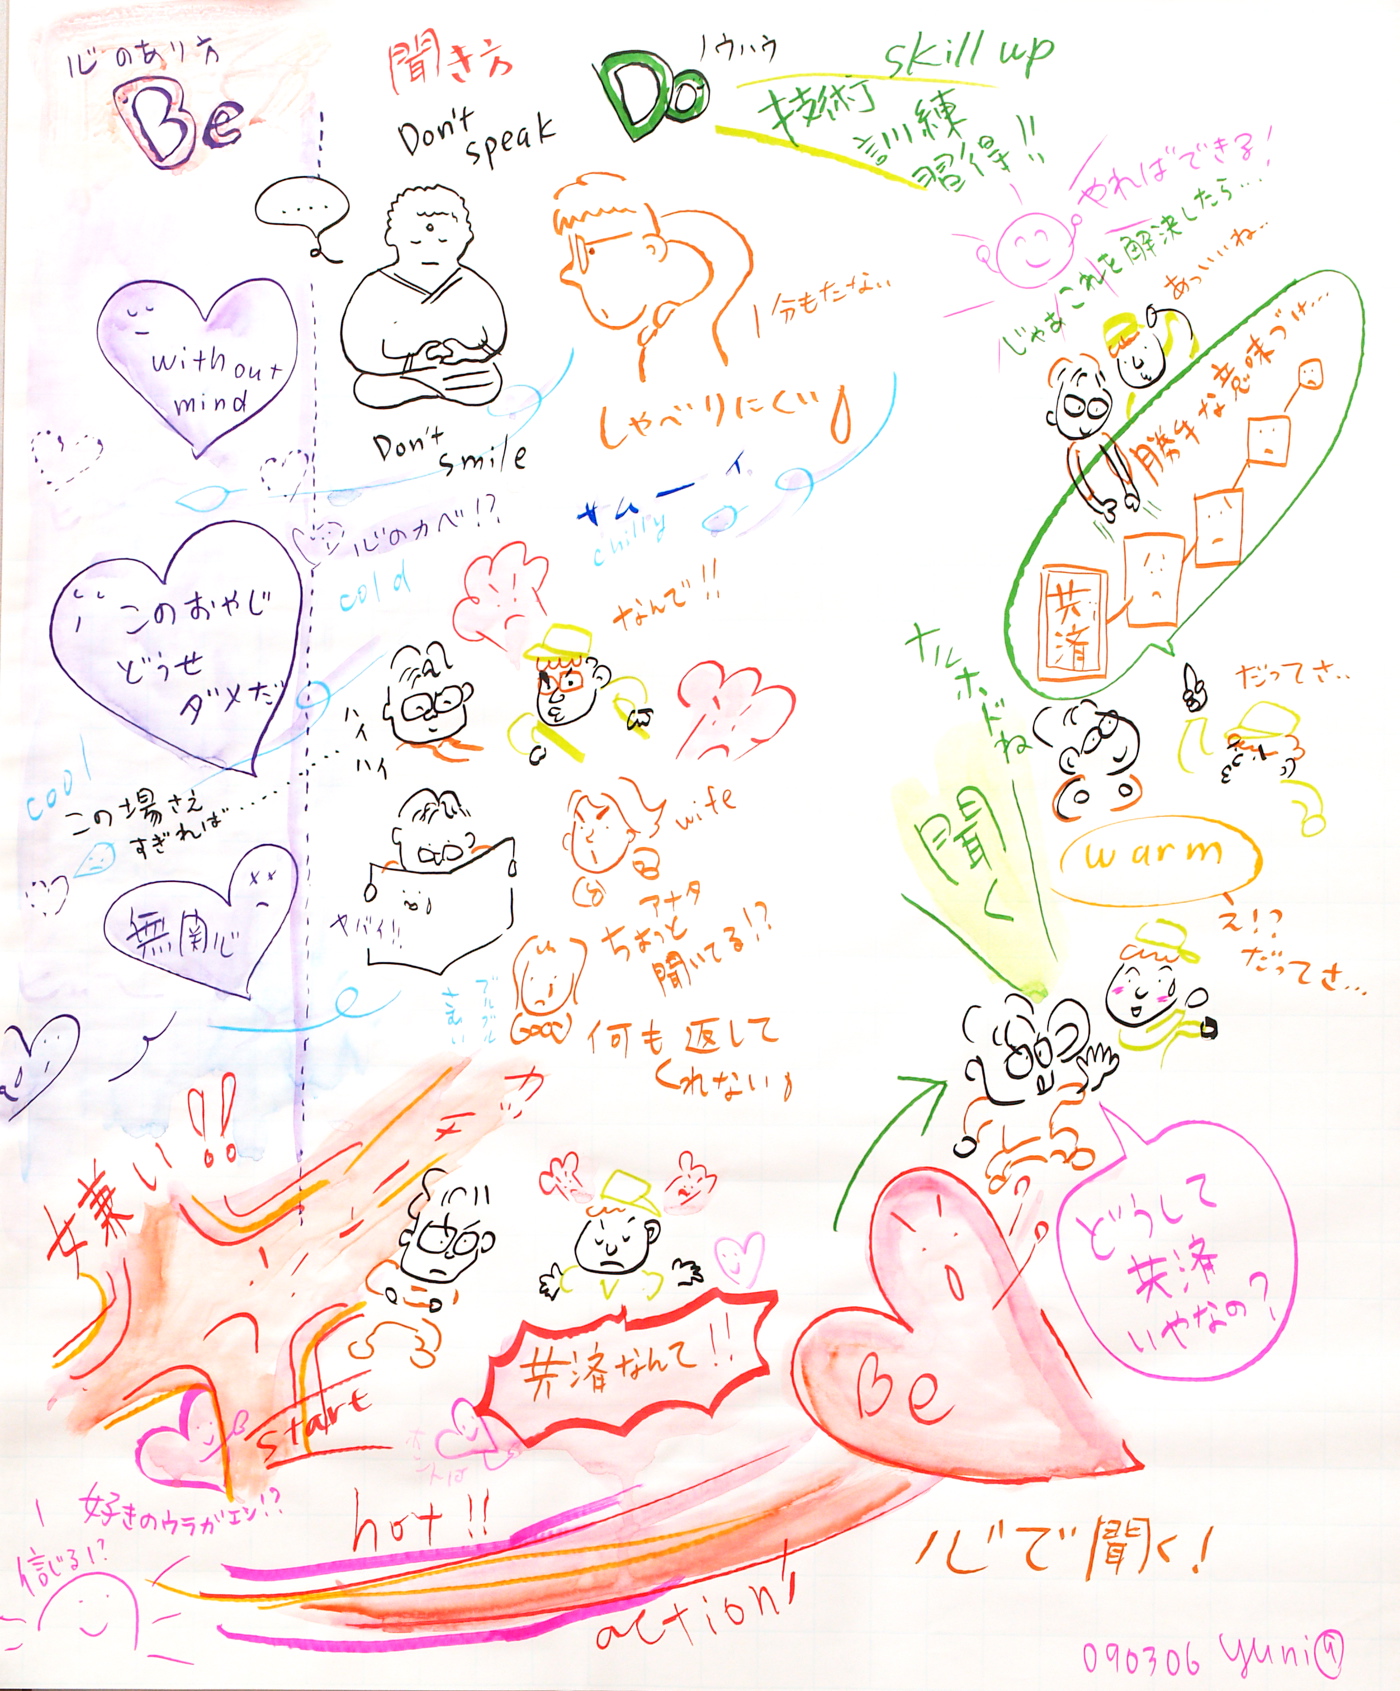 心のあり方
Be
聞き方
Don't
speak
Do
ノウハウ
skill up
技術
訓練
習得!!
やればできる!
じゃあこれを解決したら...
あっいいね...
....
without
mind
1分もたない
しゃべりにくい
Don't
smile
勝手な意味づけ...
共済
心のカベ!?
サムーイ。
chilly
cold
このおやじ
どうせ
ダメだ
なんで!!
ハイ
ハイ
cool
この場さえ
すぎれば......
ナルホドね
だってさ..
聞く
warm
え!?
だってさ...
wife
アナタ
ちょっと
聞いてる!?
無関心
ヤバイ!!
ブルブル
さむい
何も返して
くれない
嫌い!!
カッ
共済なんて!!
どうして
共済
いやなの?
Be
start
ホントは
hot!!
好きのウラガエシ!?
信じる!?
action!
心で聞く!
090306 yuni